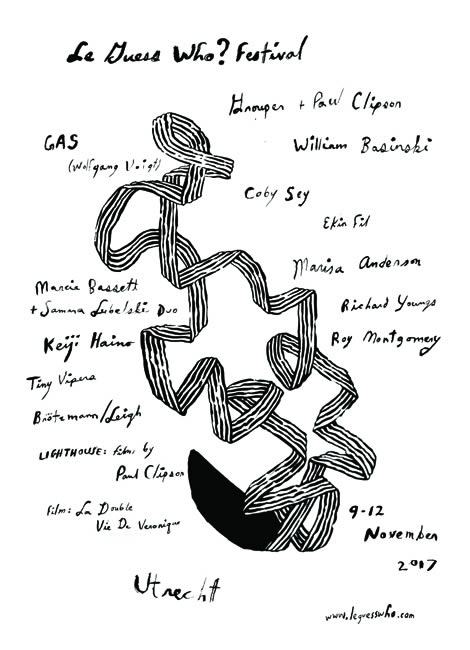 Le Guess Who? Festival
Grouper + Paul Clipson
GAS
(Wolfgang Voigt)
William Basinski
Coby Sey
Ekin Fil
Marisa Anderson
Marcia Bassett
+ Samara Lubelski Duo
Richard Youngs
Keiji Haino
Roy Montgomery
Tiny Vipers
Brötzmann/Leigh
LIGHTHOUSE: films by
Paul Clipson
Film: La Double
Vie De Veronique
9-12
November
2017
Utrecht
www.leguesswho.com